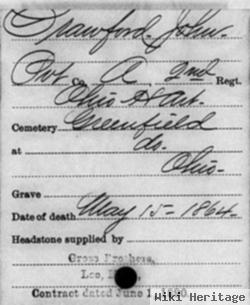 Crawford. John.
Pvt Co. A, 2nd Regt.
Ohio H. Art.
Cemetery Greenfield
at do.
Ohio.
Grave
Date of death May 15 - 1864.
Headstone supplied by
Gross Brothers,
Lee,
Contract dated June 1,
Wiki Heritage